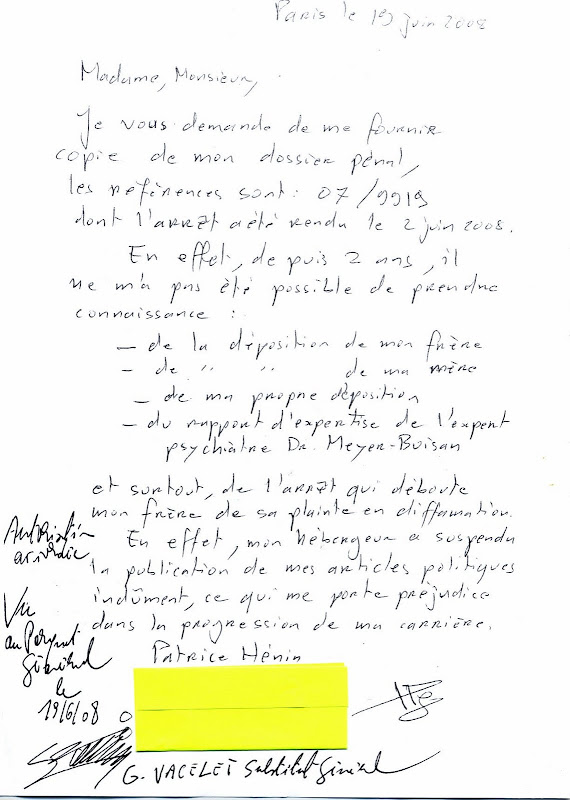 Paris le 19 juin 2008
Madame, Monsieur,
Je vous demande de me fournir
copie de mon dossier pénal,
les références sont : 07/9919
dont l'arrêt a été rendu le 2 juin 2008.
En effet, depuis 2 ans, il
ne m'a pas été possible de prendre
connaissance :
– de la déposition de mon frère
– de " " de ma mère
– de ma propre déposition
– du rapport d'expertise de l'expert
psychiàtre Dr. Meyer-Buisan
et surtout, de l'arrêt qui déboute
mon frère de sa plainte en diffamation.
En effet, mon hébergeur a suspendu
la publication de mes articles politiques
indûment, ce qui me porte préjudice
dans la progression de ma carrière.
Patrice Hénin
Autorisation
Vu
au Parquet
Général
le
19/6/08
G. VACELET Substitut Général